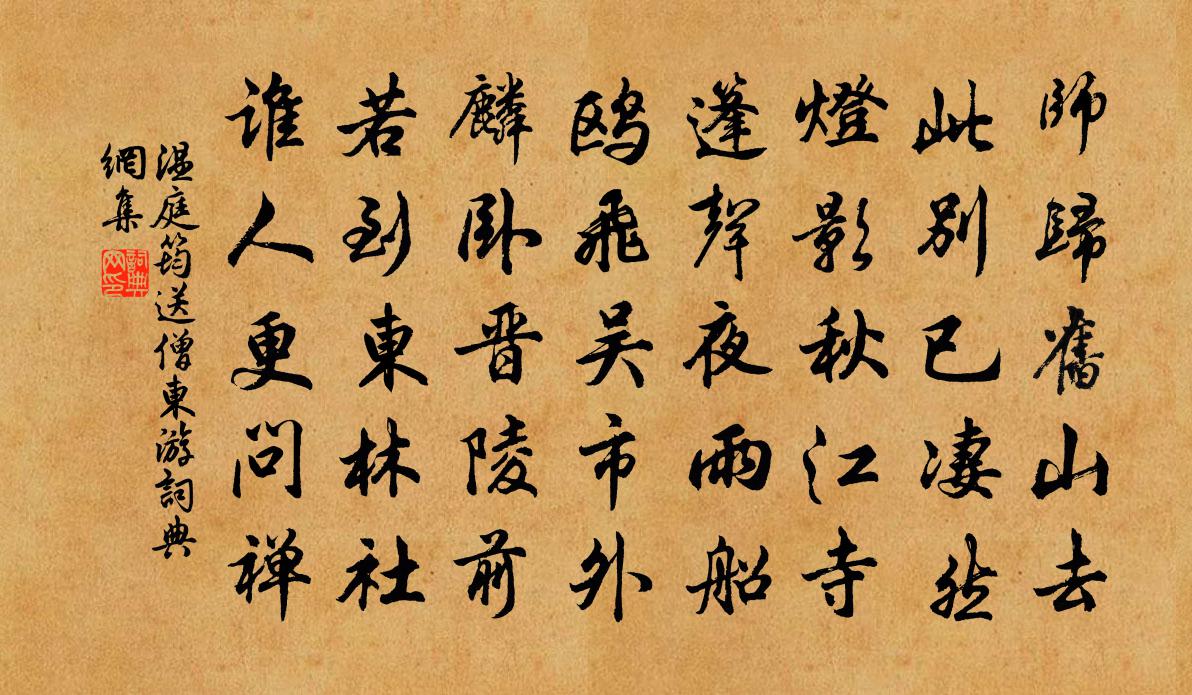 師歸舊山去
此別已凄然
燈影秋江寺
篷聲夜雨船
鷗飛吴市外
麟卧晋陵前
若到東林社
誰人更問禅
温庭筠送僧東游詞典
網集
詞典网印